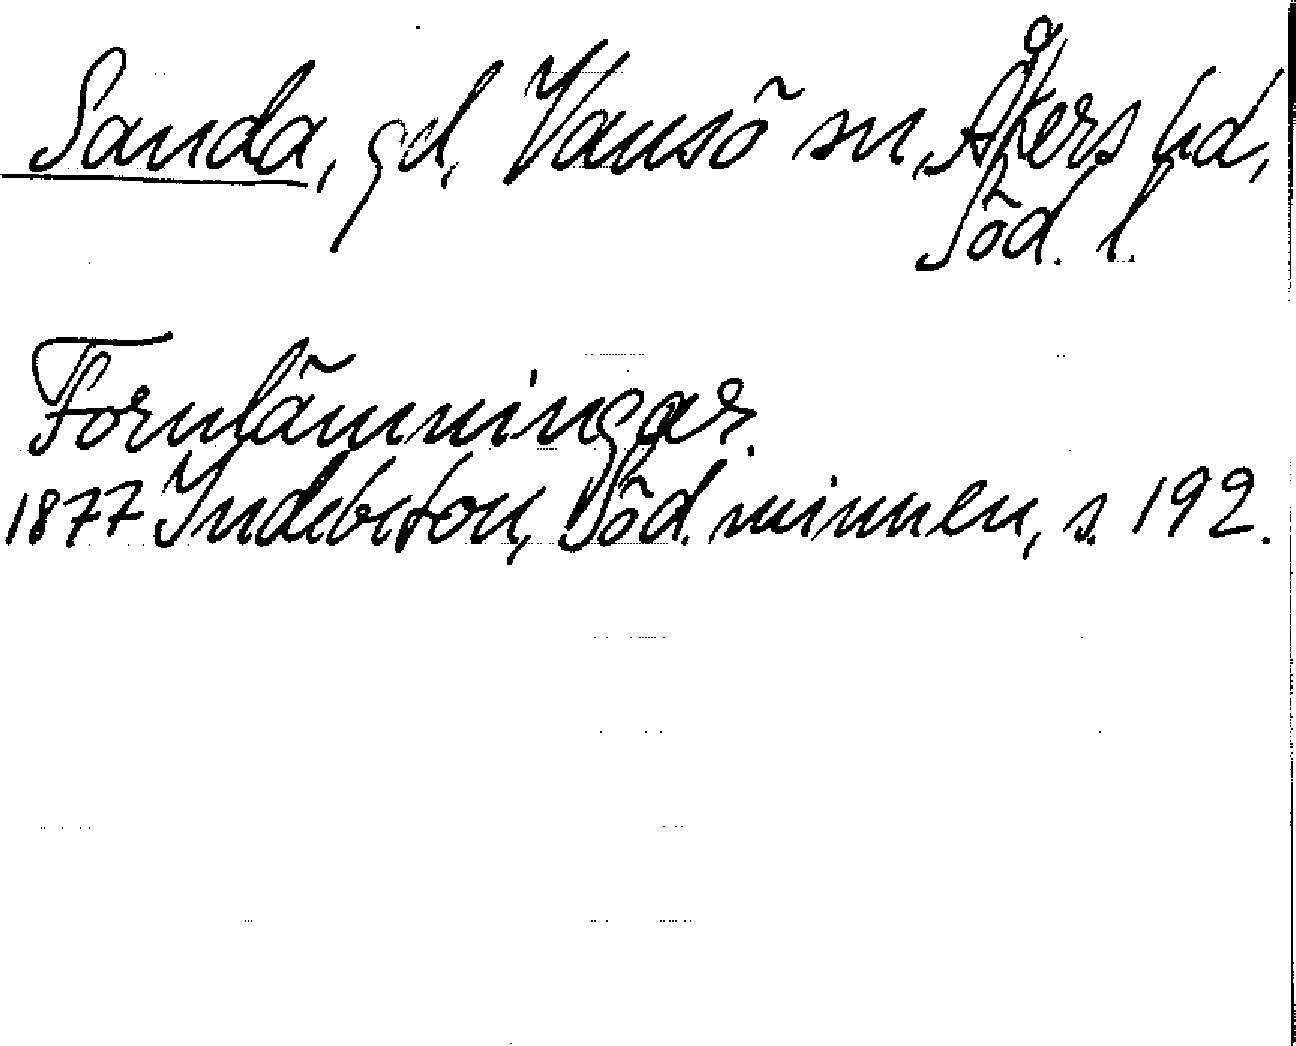 Sanda, gd, Vansö sn, Åkers hd,
Söd. l.
Fornlämningar.
1877 Indebetou, Söd. minnen, s. 192.